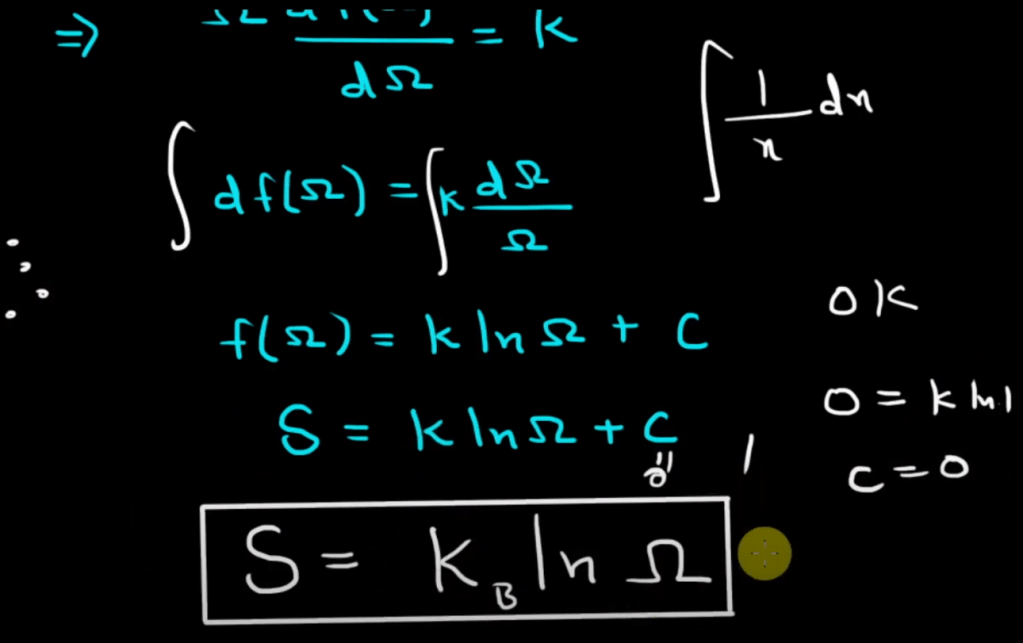 ⇒ dΩ = k
∫ 1/x dx
∫ df(Ω) = ∫ k dΩ/Ω
f(Ω) = k ln Ω + C
0 K
S = k ln Ω + C
0 = k ln 1
"
0
C = 0
S = K_B ln Ω